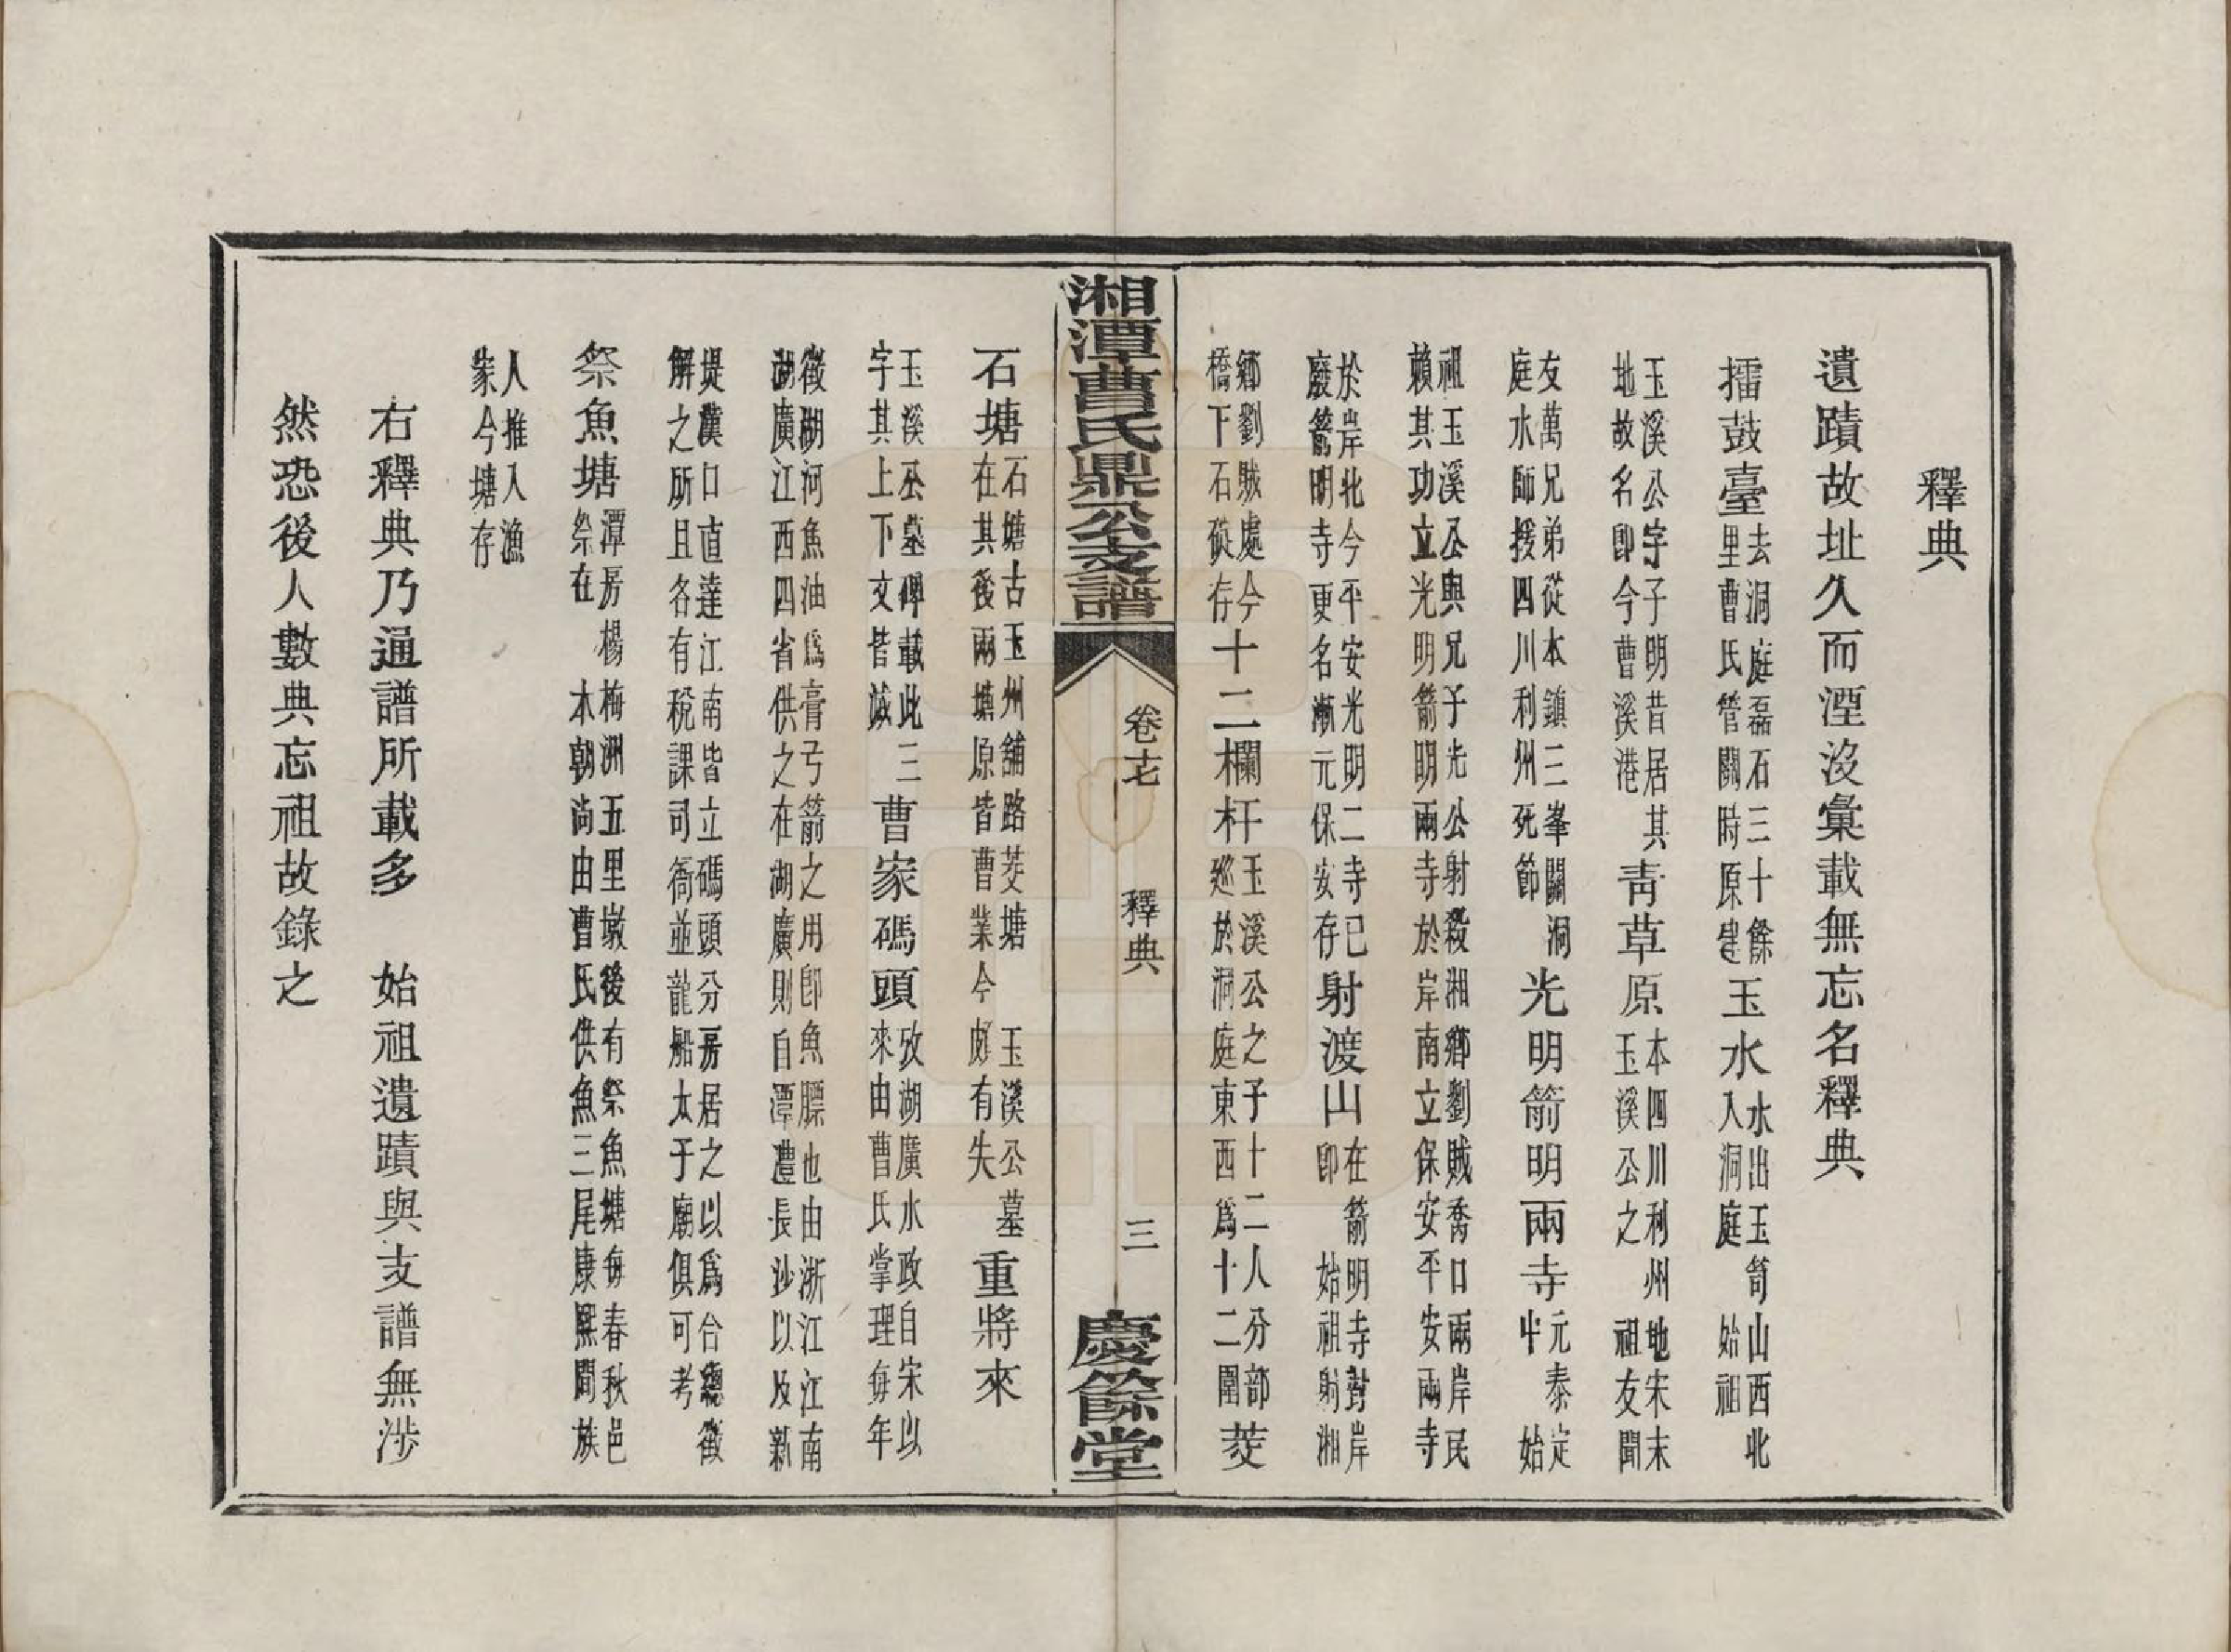 釋典
遺蹟故址久而湮沒彙載無忘名釋典
擂鼓臺去洞庭磊石三十餘里曹氏管關時原建玉水水出玉笥山西北入洞庭 始祖
玉溪公字子明昔居其地故名即今曹溪港青草原本四川利州地宋末玉溪公之 祖友聞
友萬兄弟從本鎮三峯關 洞庭水師援四川利州死節光明箭明兩寺元泰定中 始
祖玉溪公與兄子光公射殺湘鄉劉賊喬口兩岸民賴其功立光明箭明兩寺於岸南立保安平安兩寺
於岸北今平安光明二寺已廢箭明寺更名漸元保安存射渡山在箭明寺對岸即 始祖射湘
鄉劉賊處今橋下石礎存十二欄杆玉溪公之子十二人分部巡於洞庭東西爲十二圍茭
湘潭曹氏鼎公支譜 卷十七 釋典 三 慶餘堂
石塘石塘古玉州舖路茭塘在其後兩塘原皆曹業今頗有失 玉溪公墓重將來
玉溪公墓碑載此三字其上下文皆滅 曹家碼頭攷湖廣水政自宋以來由曹氏掌理每年
徵湖河魚油爲膏弓箭之用卽魚膘也由浙江江南湖廣江西四省供之在湖廣則自潭澧長沙以及新
堤漢口直達江南皆立碼頭分房居之以爲台總徵解之所且各有稅課司衙並龍船太子廟俱可考
祭魚塘潭房楊梅洲五里墩後有祭魚塘每春秋邑祭在 本朝尚由曹氏供魚三尾康熙間族
人推入漁家今塘存
右釋典乃通譜所載多 始祖遺蹟與支譜無涉
然恐後人數典忘祖故錄之